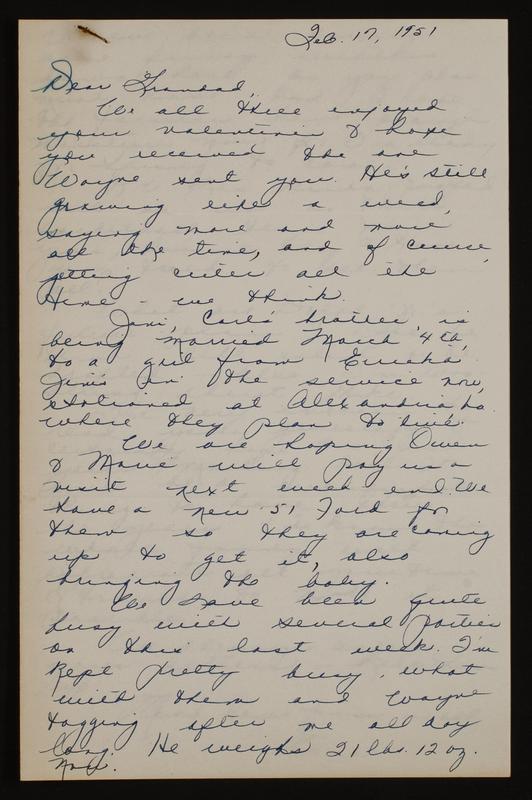 Feb. 17, 1951
Dear Grandad,
We all three enjoyed
your valentine & hope
you received the one
Wayne sent you. He's still
growing like a weed,
saying more and more
all the time, and of course,
getting cuter all the
time - we think.
Jim, Carl's brother, is
being married March 4th,
to a girl from Eureka.
Jim's in the service now,
stationed at Alexandria La.
where they plan to live.
We are hoping Owen
& Marie will pay us a
visit next week end. We
have a new 51 Ford for
them so they are coming
up to get it, also
bringing the baby.
We have been quite
busy with several parties
on this last week. I'm
kept pretty busy, what
with them and Wayne
tagging after me all day
long. He weighs 21 lbs. 12 oz.
now.